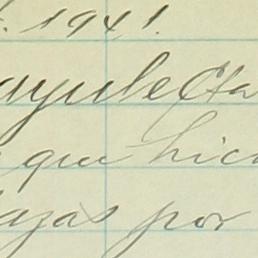 . 1941.
ayule Eta
que hici
azas por